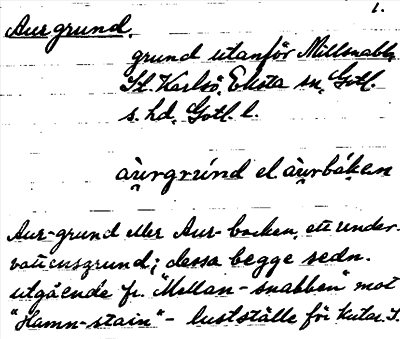 1.
Aurgrund.
grund utanför Millsnabb,
St. Karlsö, Eksta sn, Gotl.
s. hd, Gotl. l.
àu̯rgrúnd el àu̯rbák̯en
Aur-grund eller Aur-backen, ett under-
vattensgrund; dessa begge sedn.
utgående fr. "Mellan-snabben" mot
"Hamn-stain" - lustställe för kutar. S.